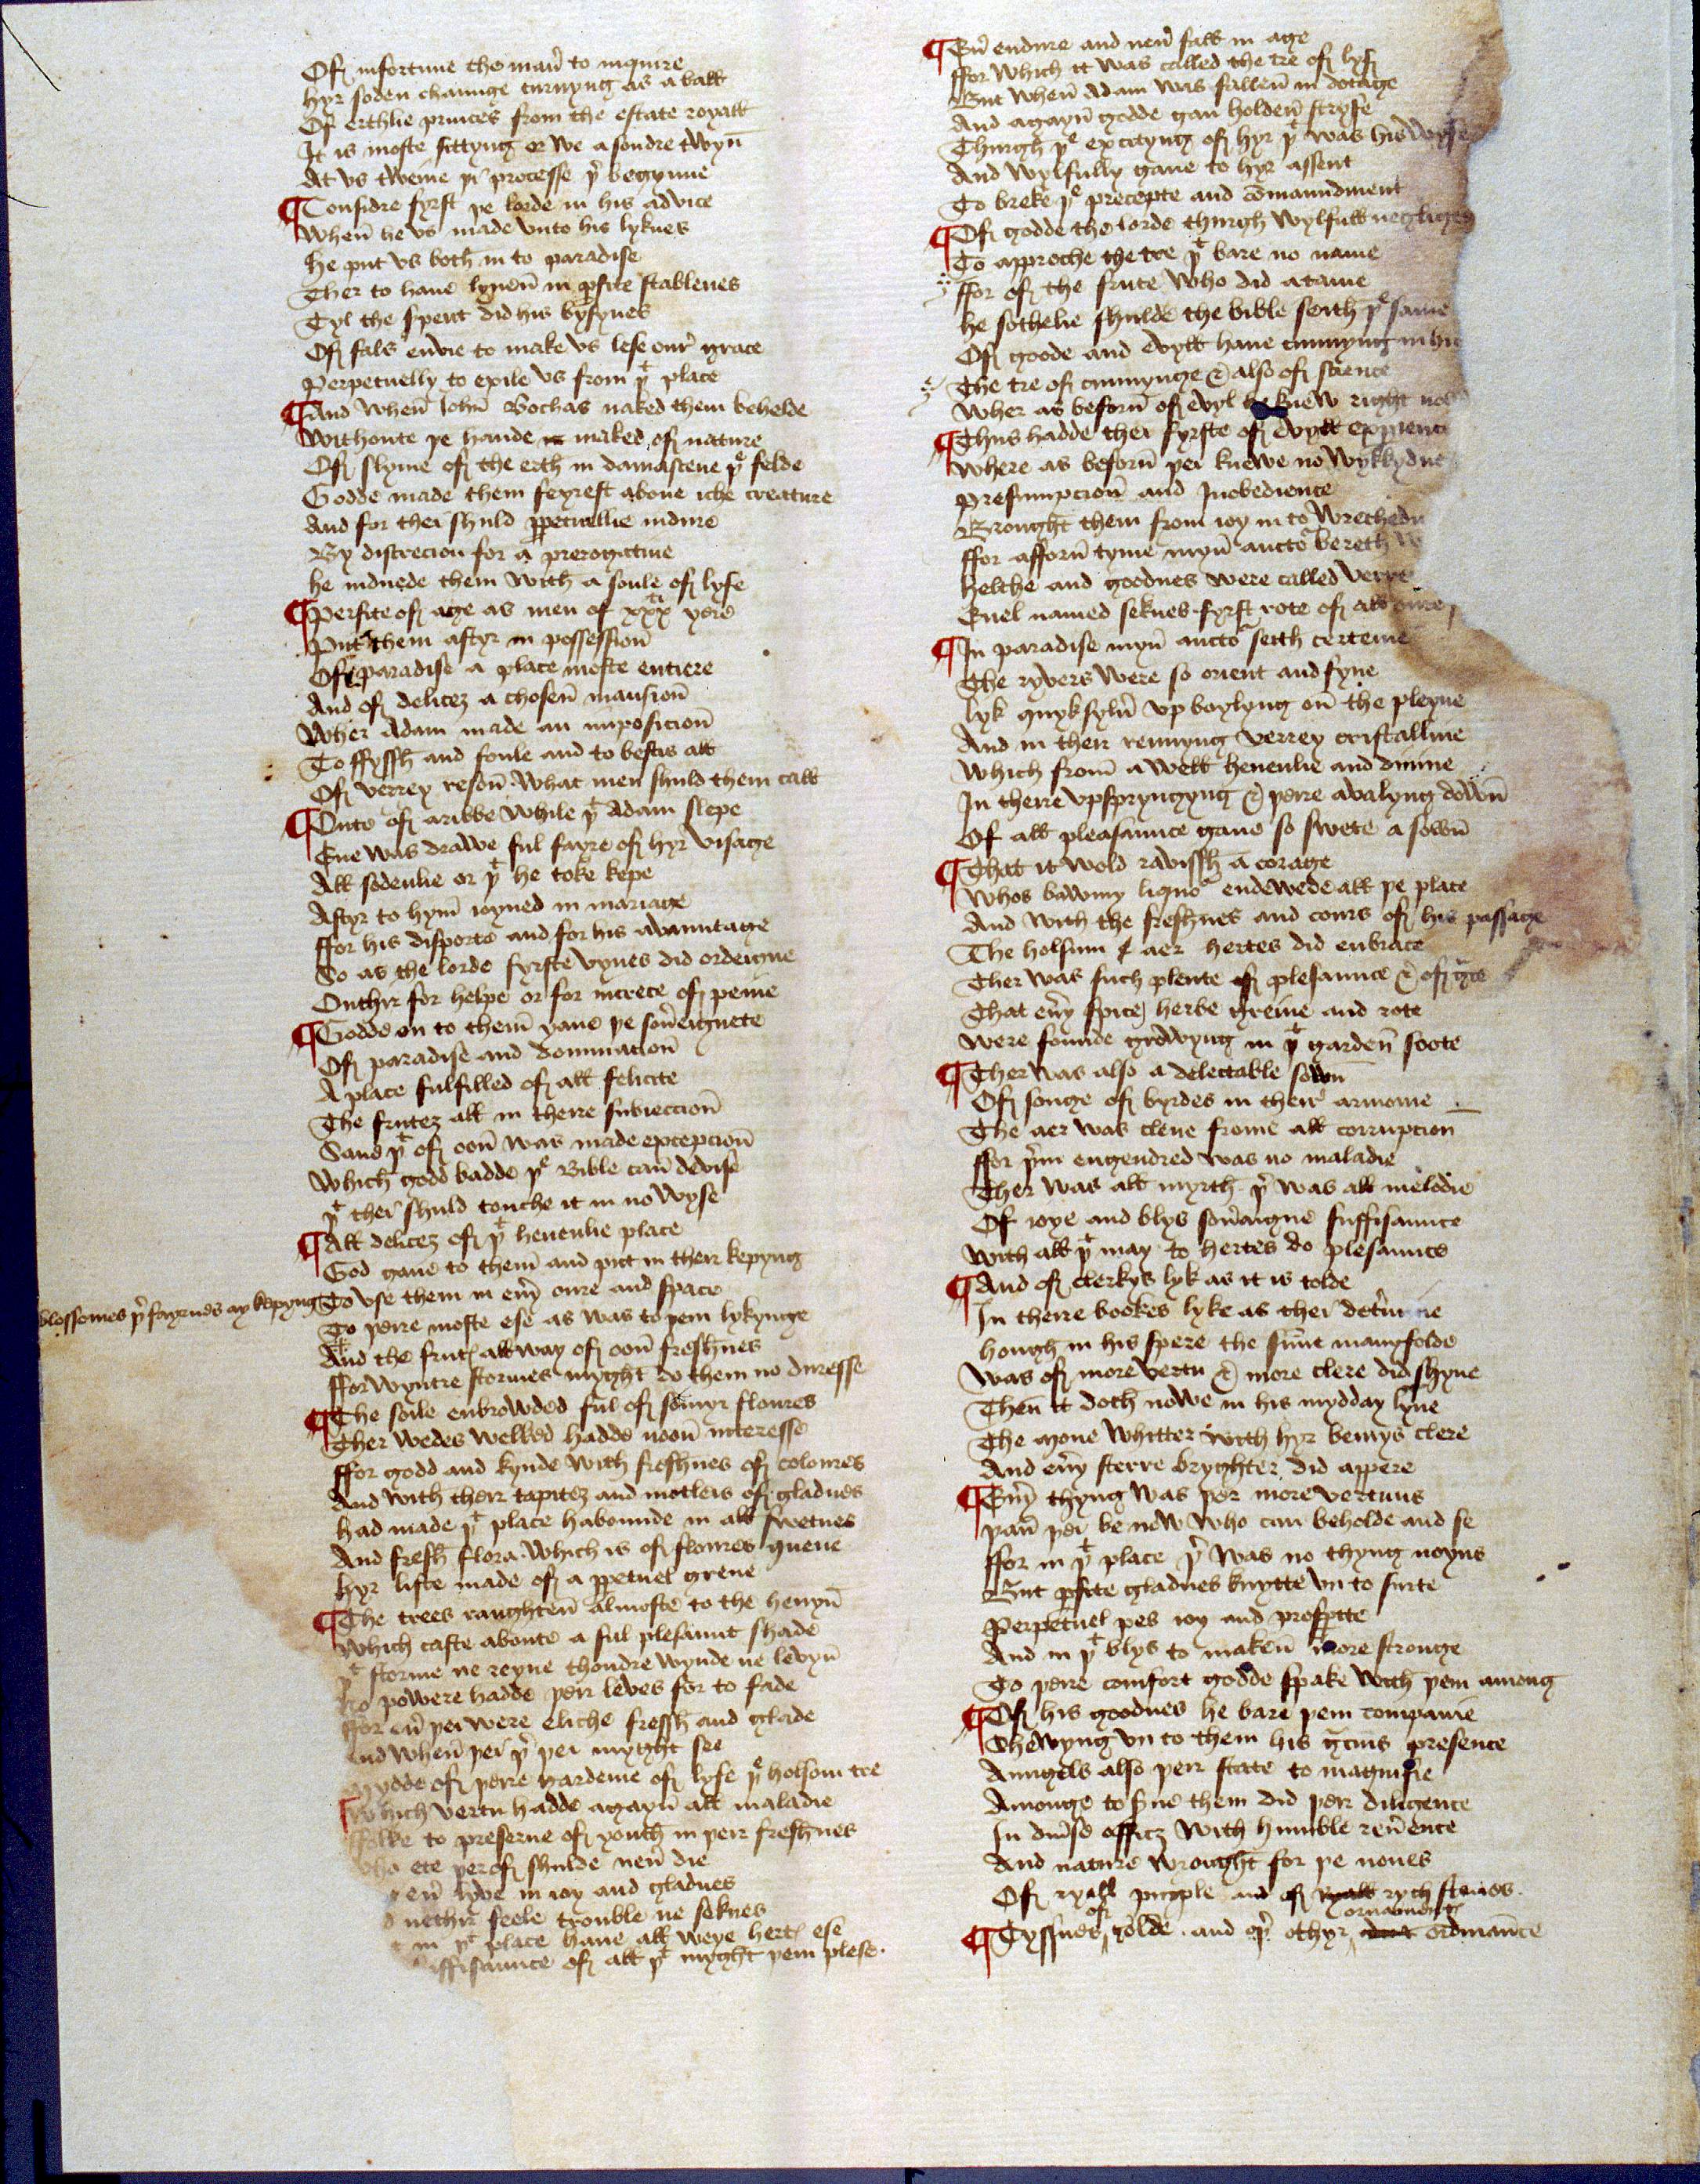 Off infortune the maner to inquire
hyr soden chaunge turnyng as a ball
Off erthlie princes from the estate royall
It is moste sittyng er we a sondre twyn
At vs tweine þi processe þ̉ begynne
¶ Considre fyrst þe lorde in his advice
When̄ he vs made vnto his lyknes
He put vs both in to paradise
Ther to haue lyuen̄ in ꝑfite stablenes
Tyl the spent did his bysynes
Off fals envie to make vs lese our̉ grace
Perpetuelly to exile vs from þͭ place
¶ And when̄ Iohn̄ Bochas naked them behelde
withoute þe hande maked off nature
Off slyme off the erth in damascene þͤ felde
Godde made them feyrest aboue iche creature
And for thei shuld ꝑpetuellie indure
By discrecion for a prerogatiue
he induede them with a soule off lyfe
¶ Perfite off age as men of xxxͭⁱ yere
Put them aftyr in possession̄
Off paradise a place moste entiere
And off delicez a chosen̄ mansion̄
Wher Adam made an imposicion̄
To ffyssh and foule and to bestis all
Off verrey reson̄ what men shuld them call
¶ Oute off a ribbe while þͭ Adam slepe
Eue was drawe ful fayre off hyr visage
All sodenlie or þͭ he toke kepe
Aftyr to hym̄ ioyned in mariage
ffor his disporte and for his auauntage
So as the lorde fyrste vynes did ordeigne
Outhir for helpe or for increce off peine
¶ Godde on to them̄ yaue þe soủeignete
Off paradise and dominacion̄
A place fulfilled off all felicite
The frutez all in theire subieccion̄
Saue þͭ off oon̄ was made excepcion̄
Which godd badde þͤ Bible can̄ devise
þͭ thei shuld touche it in no wyse
¶ All delicez off þͭ heuenlie place
God gaue to them̄ and put in their kepyng
To vse them in eủy oure and space
blossomes þ̉ fayrnes ay kepyng
To þeire moste ese as was to þem lykynge
And the frutꝭ allway off oon̄ freshnes
ffor wyntre stormes myght do them no duresse
¶ The soile enbrowded ful off somyr floures
Ther wedes welked hadde noon̄ interesse
ffor godd and kynde with freshnes off coloures
And with their tapitez and motleis off gladnes
had made þͭ place habounde in all swetnes
And fresh flora which is off floures quene
hyr liste made off a ꝑpetuel grene
¶ The trees raughten̄ almoste to the heuyn̄
Which caste aboute a ful plesaunt shade
þͭ storme ne reyne thondre wynde ne levyn̄
no powere hadde þeir leves for to fade
ffor eủ þei were eliche fressh and glade
And when̄ þei þ̉ þei myght see
mydde off þeire gardeine off lyfe þͤ holsom tre
¶ Which vertu hadde agayn̄ all maladie
ffolke to preserue off youth in þeir freshnes
who ete þeroff shulde neủ die
eủ lyve in ioy and gladnes
nethir feele trouble ne seknes
in þͭ place haue all weye hertꝭ ese
suffisaunce off all þͭ myght þem plese
¶ Eủ endure and neủ fall in age
ffor which it was called the tre off lyff
But when̄ Adam was fallen̄ in dotage
And agayn̄ godde gan holden̄ stryfe
Thurgh þͤ excityng off hyr þͭ was his wyfe
And wylfully gaue to hyr assent
To breke þͤ precepte and co̅maundment
¶ Off godde the lorde thurgh wylfull negligen
To approche the tre þͭ bare no name
ffor off the frute who did atame
he sothelie shulde the bible seith þͤ same
Off goode and evyll haue cunnyng in hi
The tre off cunnynge & also off science
Wher as beforn̄ off evyl he knew right no
¶ Thus hadde thei fyrste off evyll exꝑienc
Where as beforn̄ þei knewe no wykkydne
Presumpcion̄ and Inobedience
Brought them from ioy in to wrechedn
ffor afforn̄ tyme myn̄ aucto͛ bereth w
helthe and goodnes were called
Euel named seknes fyrst rote off all oure
¶ In paradise myn̄ aucto͛ seith certeine
The ryvers were so orient and fyne
lyk quyksylủ vp boylyng on̄ the pleyne
And in their rennyng verrey cristalline
Which from̄ a well heuenlie and diuine
In theire vpspryngyng & þeire avalyng down̄
Of all pleasaunce gaue so swete a sown̄
¶ That it wold ravissh a corage
Whos bawmy liquo͛ endewede all þe place
And with the freshnes and cours off his passage
The holsum aer hertes did enbrace
Ther was such plente off plesaunce & off g̅ce
That eủy spice herbe greine and rote
were founde growyng in þͭ garden̄ soote
¶ Ther was also a delectable sown̄
Off songe off byrdes in their armonie
The aer was clene frome all corrupcion
ffor þ̉in engendred was no maladie
Ther was all myrth þ̉ was all melodie
Of ioye and blys soủaigne suffisaunce
With all þͭ may to hertes do plesaunce
¶ And off clerkys lyk as it is tolde
In theire bookes lyke as thei det̉mine
hough in his spere the sunne manyfolde
was off more vertu & more clere did shyne
Then̄ it doth nowe in his mydday lyne
The mone whitter with hyr bemys clere
And eủy sterre bryghter did appere
¶ Eủy thyng was þer more vertuus
þan̄ þei be now who can beholde and se
ffor in þͭ place þ̉ was no thyng noyus
But ꝑfite gladnes knytte vn to surte
Perpetuel pes ioy and prosꝑite
And in þͭ blys to maken̄ more stronge
To þeire comfort godde spake with þem among
¶ Off his goodnes he bare þem companie
Shewyng vn to them his g̅cius presence
Aungels also þeir state to magnifie
Amonge to s̉ue them did þeir diligence
In diủse officz with humble reủence
And nature wrought for þe nones
Off ryall purple and off rych stones
¶ Tyssues off golde and oþ̉ othyr ornamentꝭ ordinau̅ce